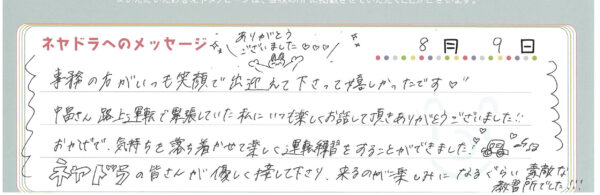 ネヤドラへのメッセージ
ありがとう
ございました♡♡♡
8月 9日
事務の方がいつも笑顔で出迎えて下さって嬉しかったです♡
中畠さん 路上運転で緊張していた私にいつも楽しくお話して頂きありがとうございました!!
おかげで、気持ちを落ち着かせて楽しく運転練習をすることができました!
ネヤドラの皆さんが優しく接して下さり、来るのが楽しみになるぐらい素敵な
教習所でした!!!